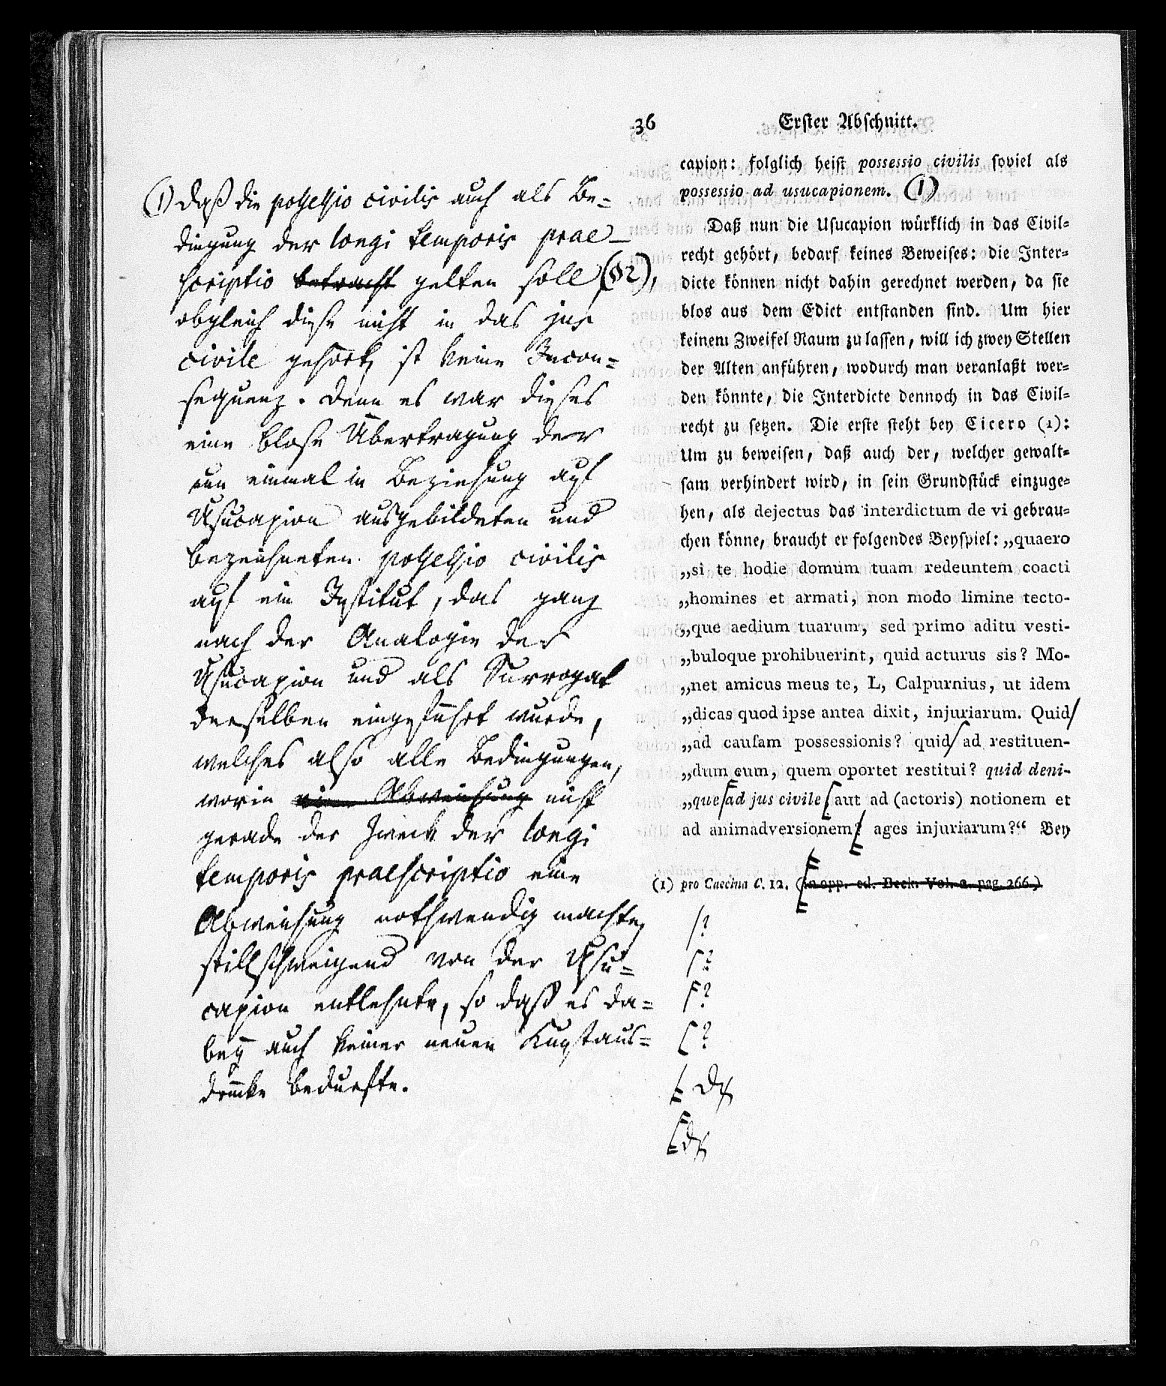 36 Erster Abschnitt.
capion: folglich heist possessio civilis soviel als
possessio ad usucapionem. (1)
Daß nun die Usucapion würklich in das Civil-
recht gehört, bedarf keines Beweises: die Inter-
dicte können nicht dahin gerechnet werden, da sie
blos aus dem Edict entstanden sind. Um hier
keinem Zweifel Raum zu lassen, will ich zwey Stellen
der Alten anführen, wodurch man veranlaßt wer-
den könnte, die Interdicte dennoch in das Civil-
recht zu setzen. Die erste steht bey Cicero (1):
Um zu beweisen, daß auch der, welcher gewalt-
sam verhindert wird, in sein Grundstück einzuge-
hen, als dejectus das interdictum de vi gebrau-
chen könne, braucht er folgendes Beyspiel: „quaero
„si te hodie domum tuam redeuntem coacti
„homines et armati, non modo limine tecto-
„que aedium tuarum, sed primo aditu vesti-
„buloque prohibuerint, quid acturus sis? Mo-
„net amicus meus te, L, Calpurnius, ut idem
„dicas quod ipse antea dixit, injuriarum. Quid
„ad causam possessionis? quid ad restituen-
„dum eum, quem oportet restitui? quid deni-
„que ad jus civile aut ad (actoris) notionem et
ad animadversionem? ages injuriarum?“ Bey
(1) pro Caecina C. 12. (in opp. ed. Beck. Vol. 2. pag. 266.)
(1) daß die possessio civilis auch als Be-
dingung der longi temporis prae-
scriptio betracht gelten soll (§2),
obgleich diese nicht in das jus
civile gehört, ist keine Incon-
sequenz. Denn es war dieses
eine blose Übertragung der
nun einmal in Beziehung auf
Usucapion ausgebildeten und
bezeichneten possessio civilis
auf ein Institut, das ganz
nach der Analogie der
Usucapion und als Surrogat
derselben eingeführt wurde,
welches also alle Bedingungen,
worin eine Abweichung nicht
gerade der Zweck der longi
temporis praescriptio eine
Abweichung nothwendig machte,
stillschweigend von der Usu-
capion entlehnte, so daß es da-
bey auch keiner neuen Kunstaus-
drücke bedurfte.